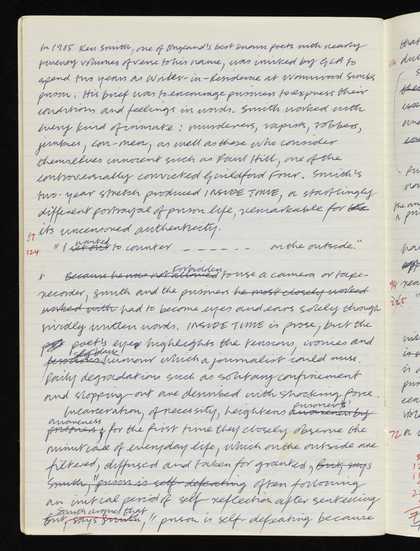 In 1985 Ken Smith, one of England's best known poets with nearly
twenty volumes of verse to his name, was invited by GLC to
spend two years as Writer-in-Residence at Wormwood Scrubs
prison. His brief was to encourage prisoners to express their
conditions and feelings in words. Smith worked with
every kind of inmate: murderers, rapists, robbers,
junkies, con-men, as well as those who consider
themselves innocent such as Paul Hill, one of the
controversially convicted Guildford Four. Smith's
two-year stretch produced INSIDE TIME, a startlingly
different portrayal of prison life, remarkable for the
its uncensored authenticity.
87
124
wanted
"I set out to counter - - - - - - on the outside."
forbidden
Because he was not allowed to use a camera or tape-
recorder, Smith and the prisoners he most closely worked
worked with had to become eyes and ears solely through
vividly written words. INSIDE TIME is prose, but the
poet's eye highlights the tensions, ironies and
humour which a journalist could miss.
Daily degradations such as solitary confinement
and slopping-out are described with shocking force.
prisoners'
Incarceration, of necessity, heightens awareness by
awareness
for the first time they closely observe the
minutiae of everyday life, which on the outside are
filtered, diffused and taken for granted, But, says
Smith, "prison is self defeating often following
an initial period of self reflection after sentencing
Smith argues that
But, says Smith, "prison is self defeating because